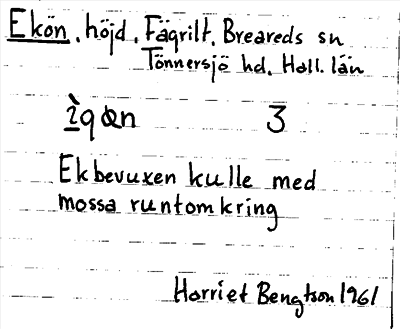 Ekön, höjd, Fägrilt, Breareds sn
Tönnersjö hd, Hall. län
ìqœn 3
Ekbevuxen kulle med
mossa runtomkring
Harriet Bengtson 1961